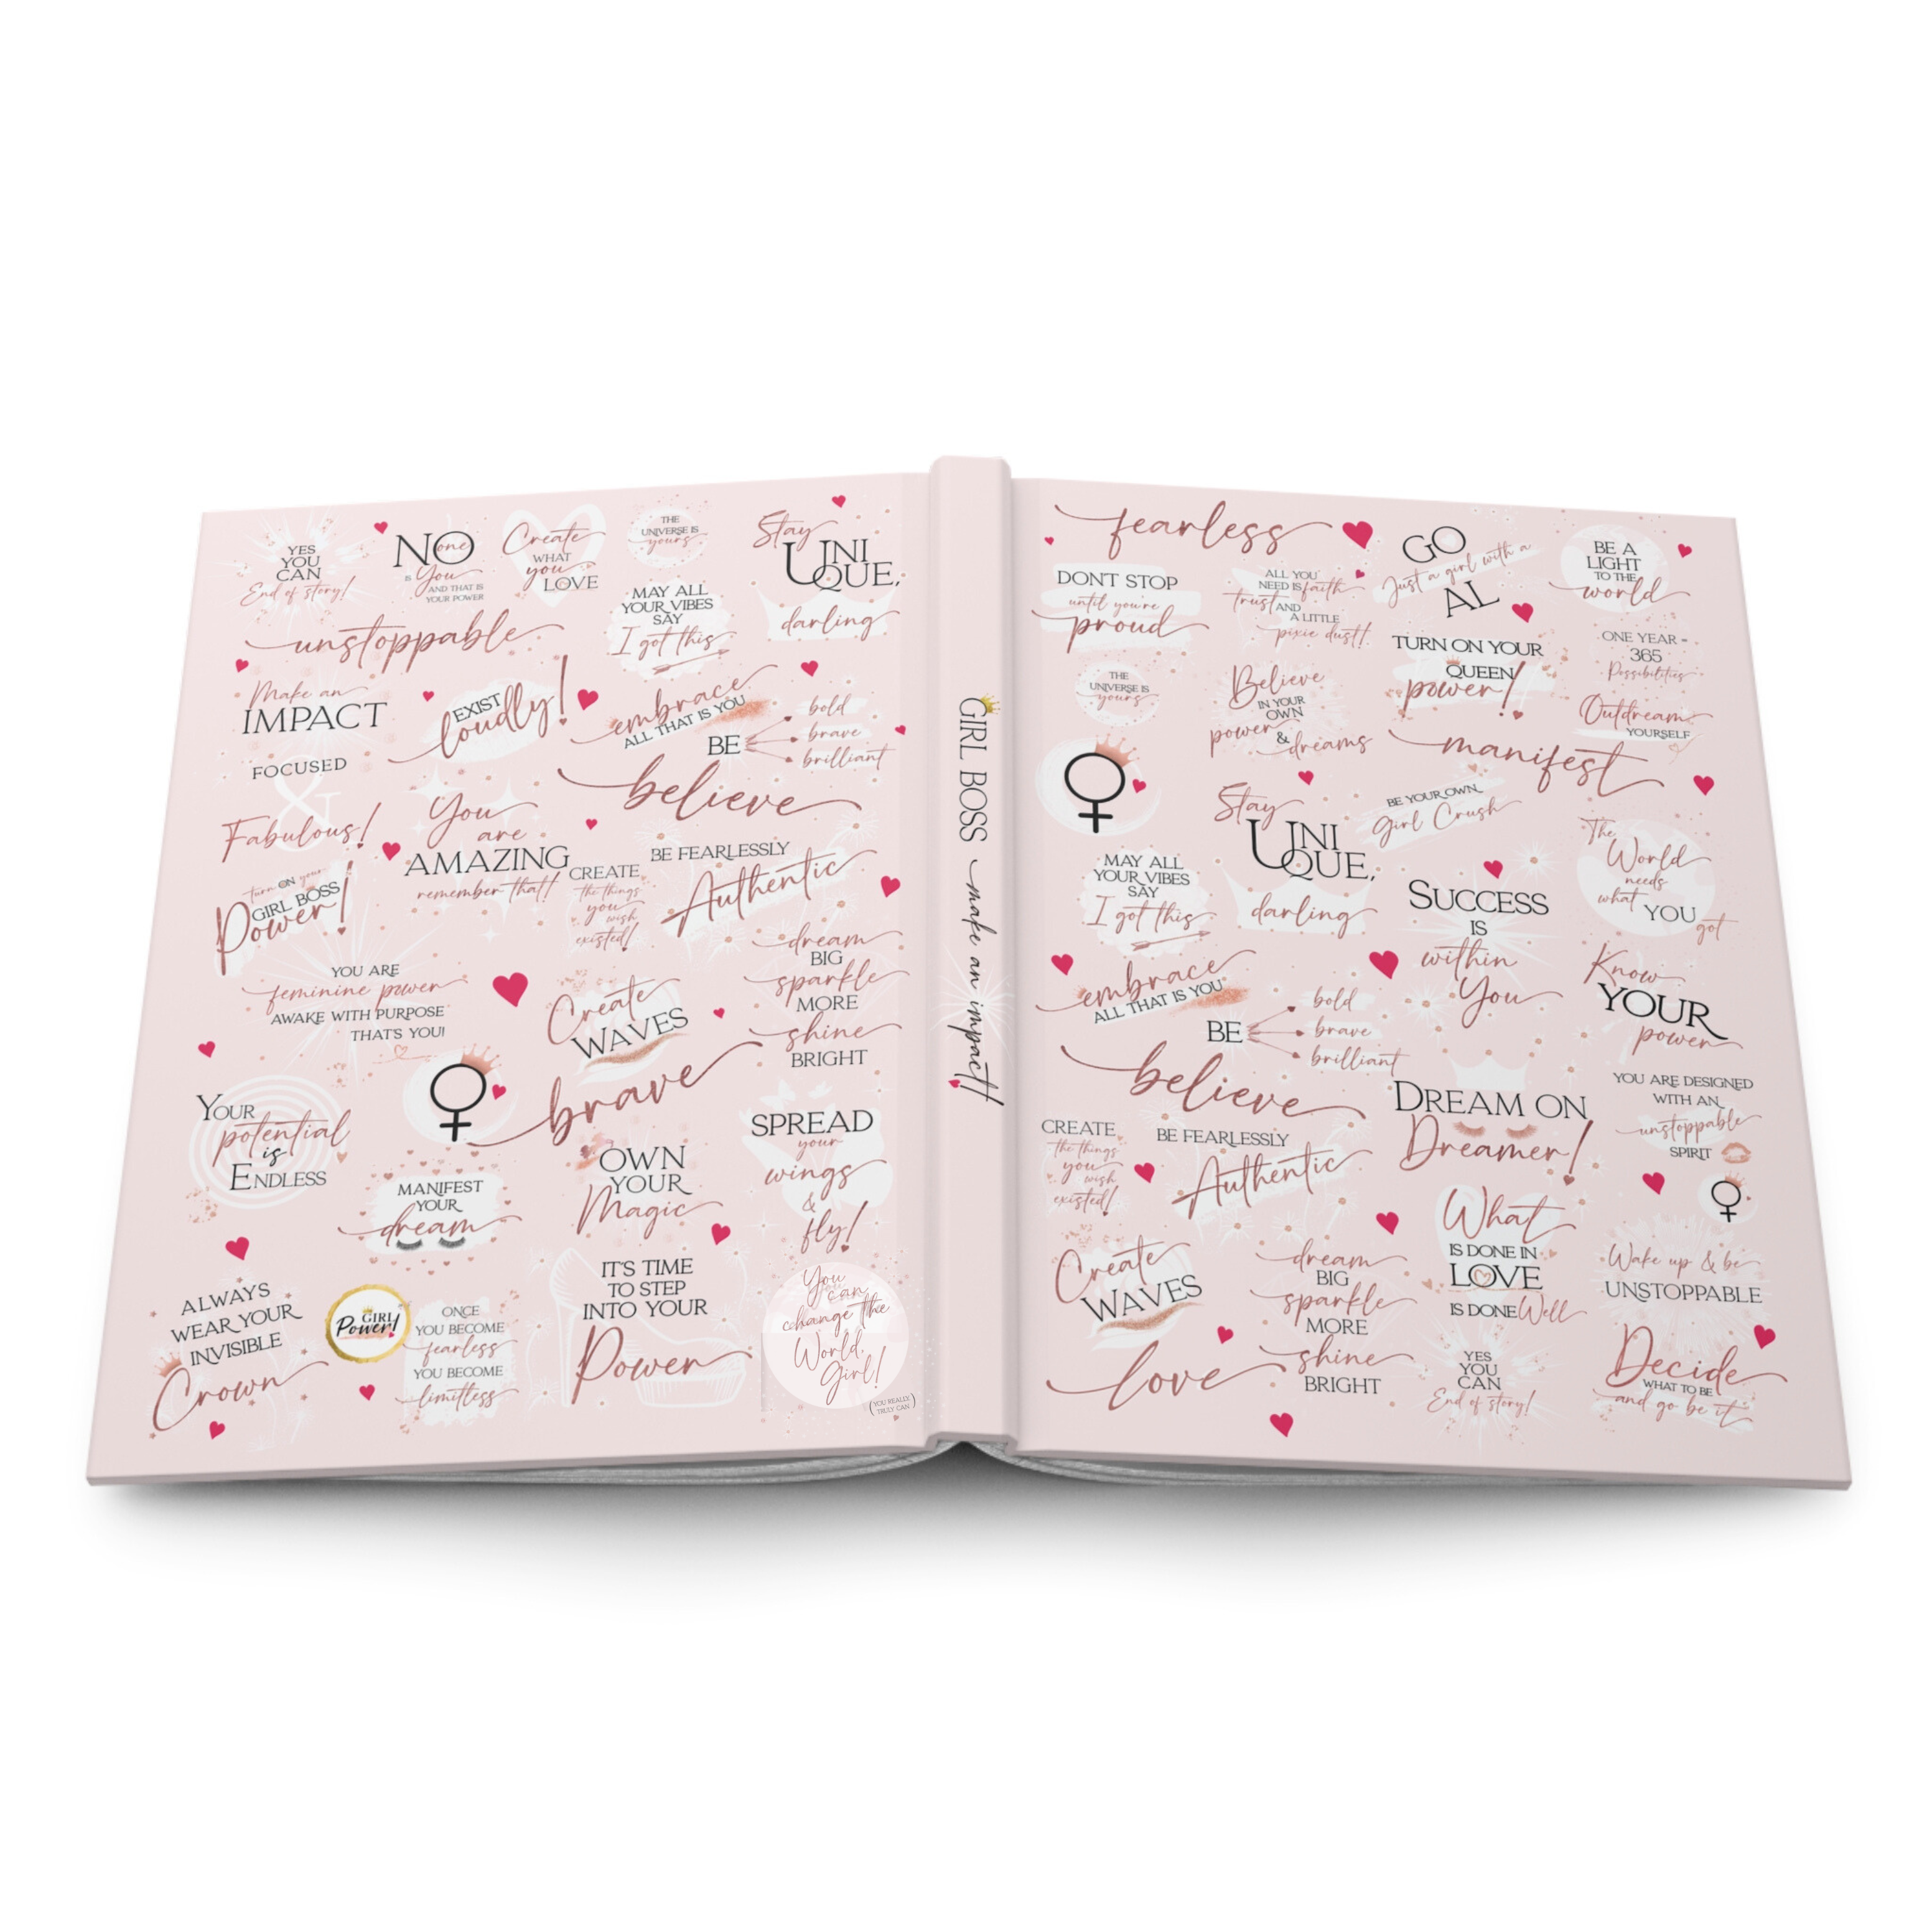 YES
YOU
CAN
End of story!
NO one
IS You
AND THAT IS
YOUR POWER
Create
WHAT
you
LOVE
THE
UNIVERSE IS
yours
Stay
UNI
QUE,
darling
MAY ALL
YOUR VIBES
SAY
I got this
unstoppable
Make an
IMPACT
EXIST
loudly!
embrace
ALL THAT IS YOU
BE
bold
brave
brilliant
FOCUSED
&
Fabulous!
believe
You
are
AMAZING
remember that!
CREATE
the things
you
wish
existed!
BE FEARLESSLY
Authentic
turn ON your
GIRL BOSS
Power!
YOU ARE
feminine power
AWAKE WITH PURPOSE
THAT'S YOU!
Create
WAVES
dream
BIG
sparkle
MORE
shine
BRIGHT
brave
YOUR
potential
is
ENDLESS
MANIFEST
YOUR
dream
OWN
YOUR
Magic
SPREAD
your
wings
&
fly!
ALWAYS
WEAR YOUR
INVISIBLE
Crown
GIRL
Power!
ONCE
YOU BECOME
fearless
YOU BECOME
limitless
IT'S TIME
TO STEP
INTO YOUR
Power
You
can
change the
World,
Girl!
(YOU REALLY
TRULY CAN)
GIRL BOSS make an impact!
fearless
DON'T STOP
until you're
proud
ALL YOU
NEED IS faith
trust AND
A LITTLE
pixie dust!
GO
Just a girl with a
AL
BE A
LIGHT
TO THE
world
THE
UNIVERSE IS
yours
Believe
IN YOUR
OWN
power
&
dreams
TURN ON YOUR
QUEEN
power!
ONE YEAR =
365
Possibilities
Outdream
YOURSELF
manifest
Stay
UNI
QUE,
darling
BE YOUR OWN
Girl Crush
The
World
needs
what YOU
got
MAY ALL
YOUR VIBES
SAY
I got this
SUCCESS
IS
within
You
embrace
ALL THAT IS YOU
BE
bold
brave
brilliant
Know
YOUR
power
believe
DREAM ON
Dreamer!
YOU ARE DESIGNED
WITH AN
unstoppable
SPIRIT
CREATE
the things
you
wish
existed!
BE FEARLESSLY
Authentic
What
IS DONE IN
LOVE
IS DONE Well
Create
WAVES
dream
BIG
sparkle
MORE
shine
BRIGHT
Wake up & be
UNSTOPPABLE
love
YES
YOU
CAN
End of story!
Decide
WHAT TO BE
and go be it